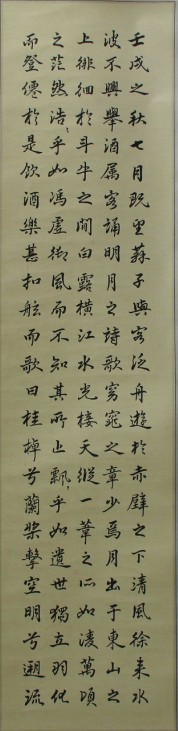 壬戌之秋七月既望蘇子與客泛舟遊於赤壁之下清風徐来水
波不興舉酒属客誦明月之詩歌窈窕之章少焉月出于東山之
上徘徊於斗牛之間白露横江水光接天縱一葦之所如凌萬頃
之茫然浩〻乎如馮虚御風而不知其所止飄〻乎如遺世獨立羽化
而登僊於是飲酒樂甚扣舷而歌曰桂棹兮蘭槳擊空明兮遡流